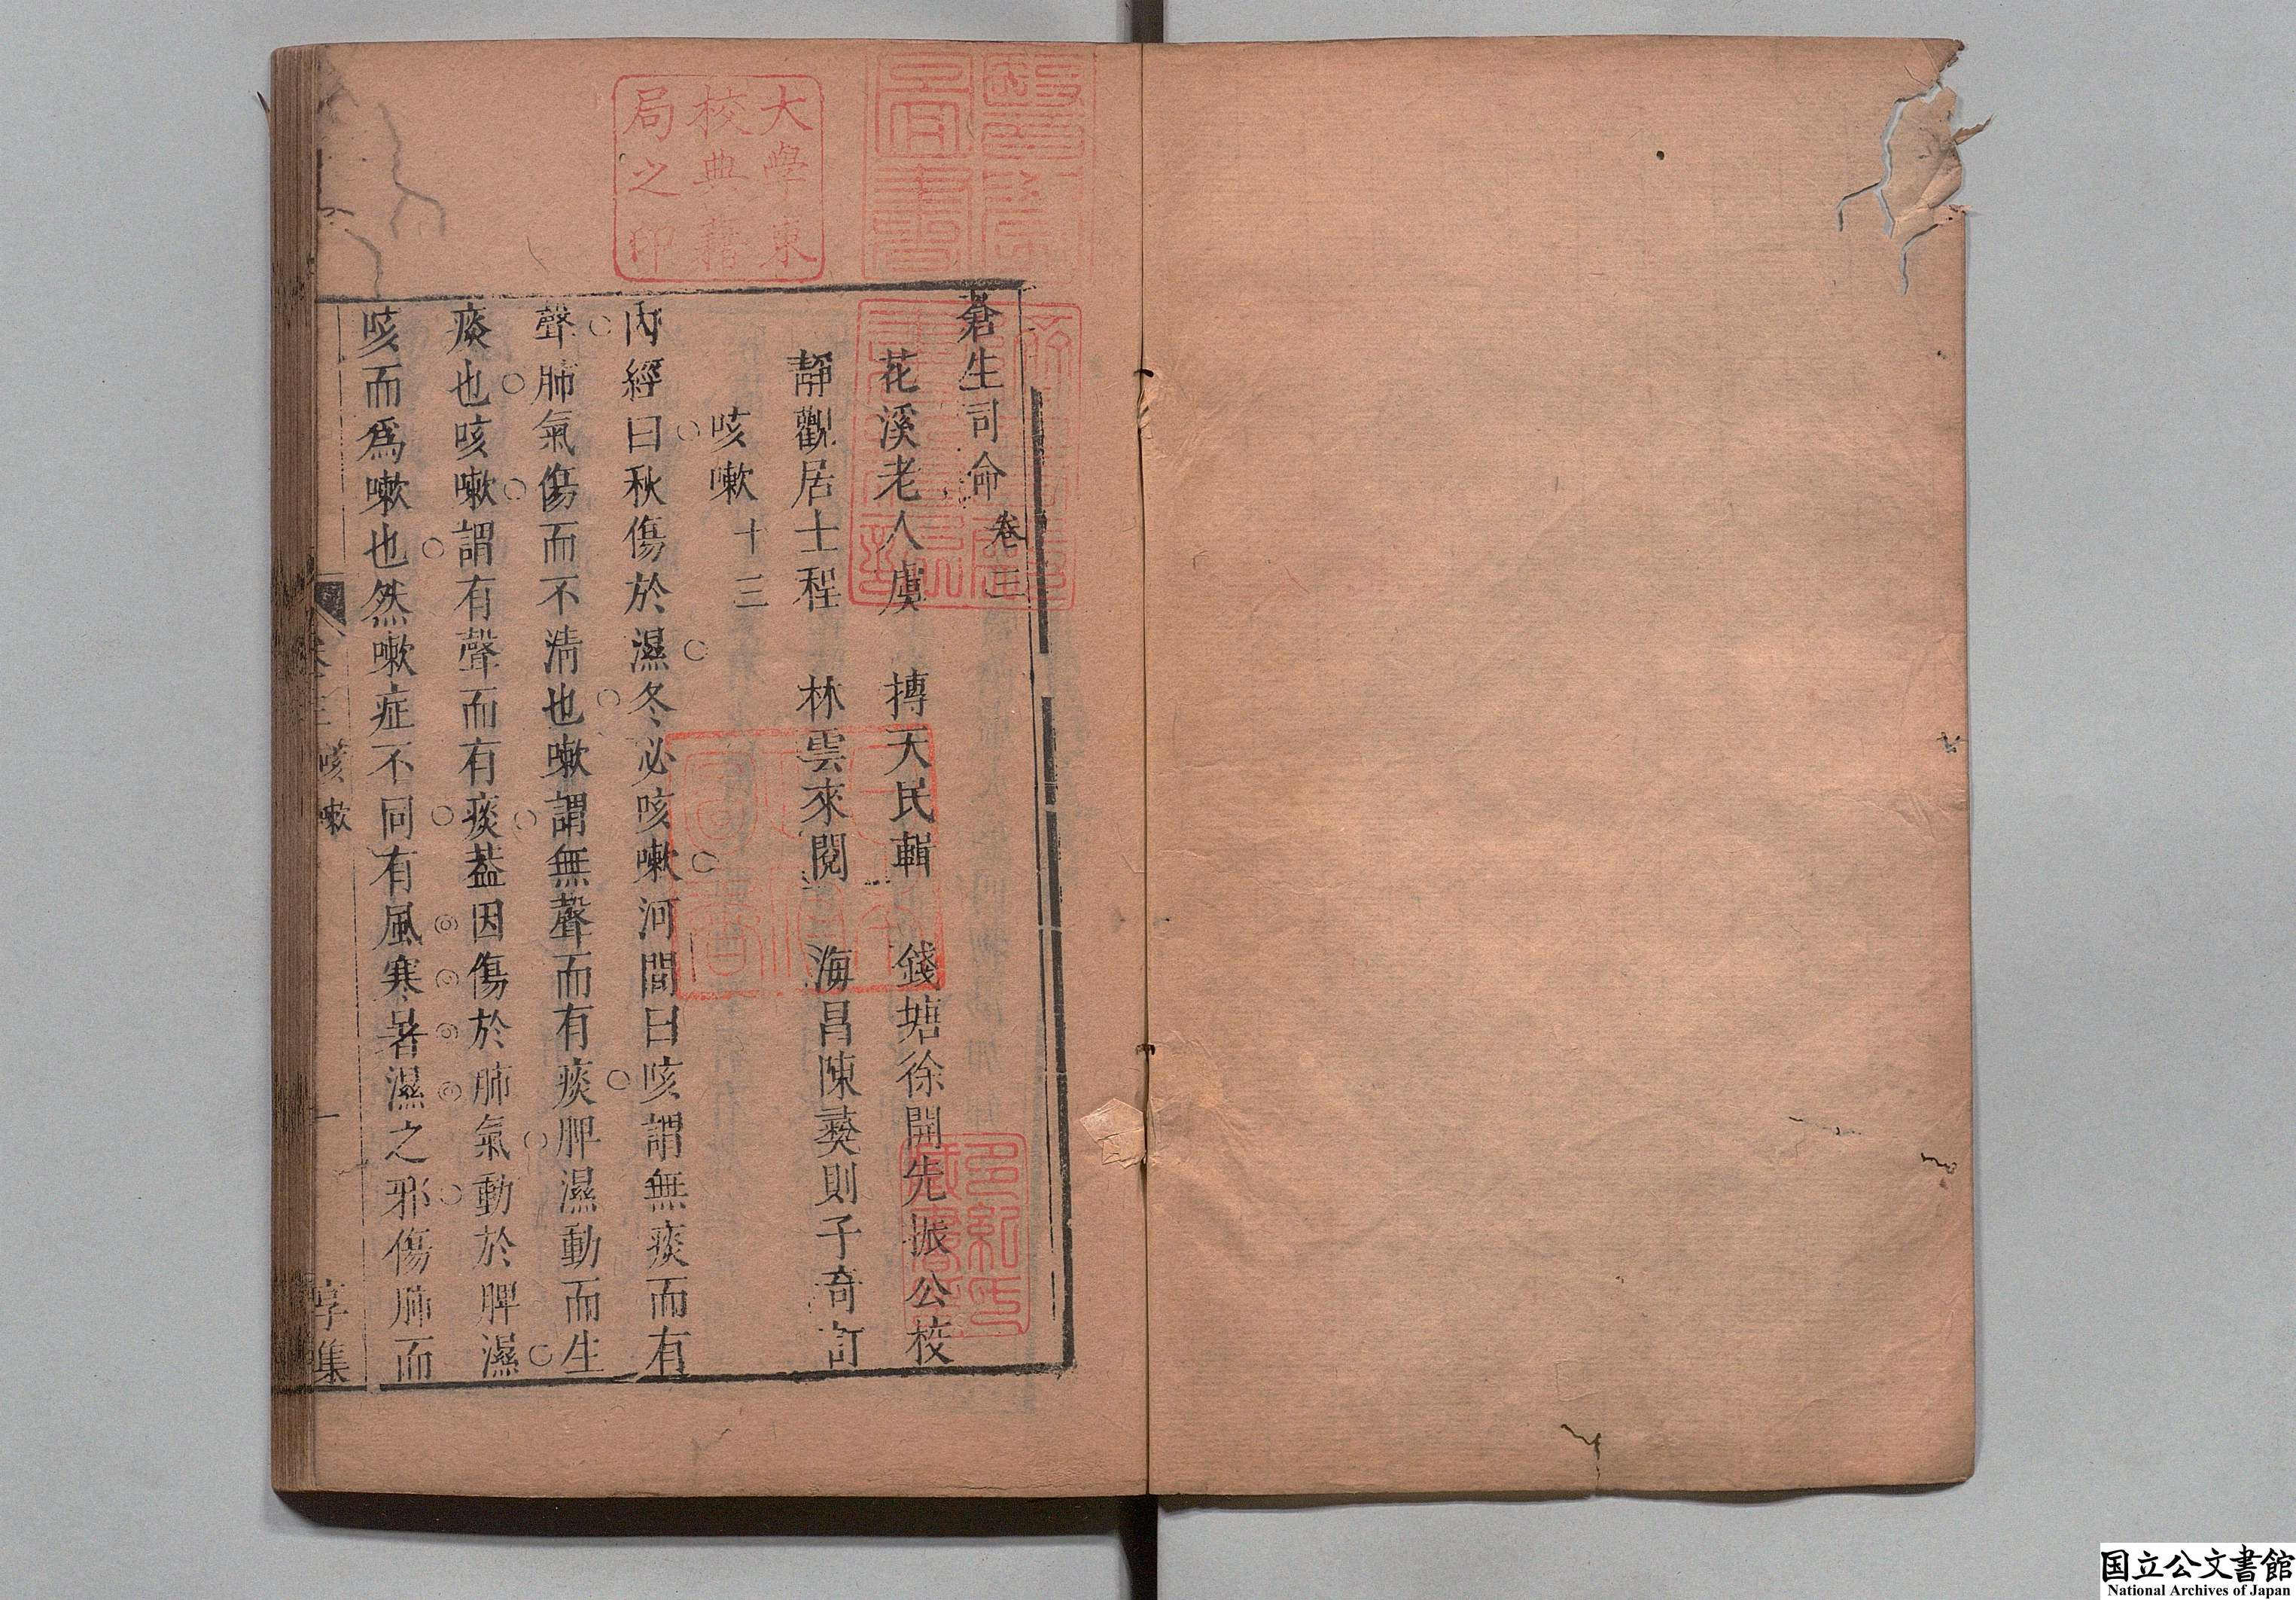 蒼生司命 卷三
花溪老人虞 摶天民輯 錢塘徐開先振公校
靜觀居士程 林雲來閱 海昌陳彝則子奇訂
咳嗽 十三
內經曰秋傷於濕冬必咳嗽河間曰咳謂無痰而有
聲肺氣傷而不清也嗽謂無聲而有痰脾濕動而生
痰也咳嗽謂有聲而有痰葢因傷於肺氣動於脾濕
咳而爲嗽也然嗽症不同有風寒暑濕之邪傷肺而
卷三 咳嗽 一 亨集
大學東
校典籍
局之印
国立公文書館
National Archives of Japan